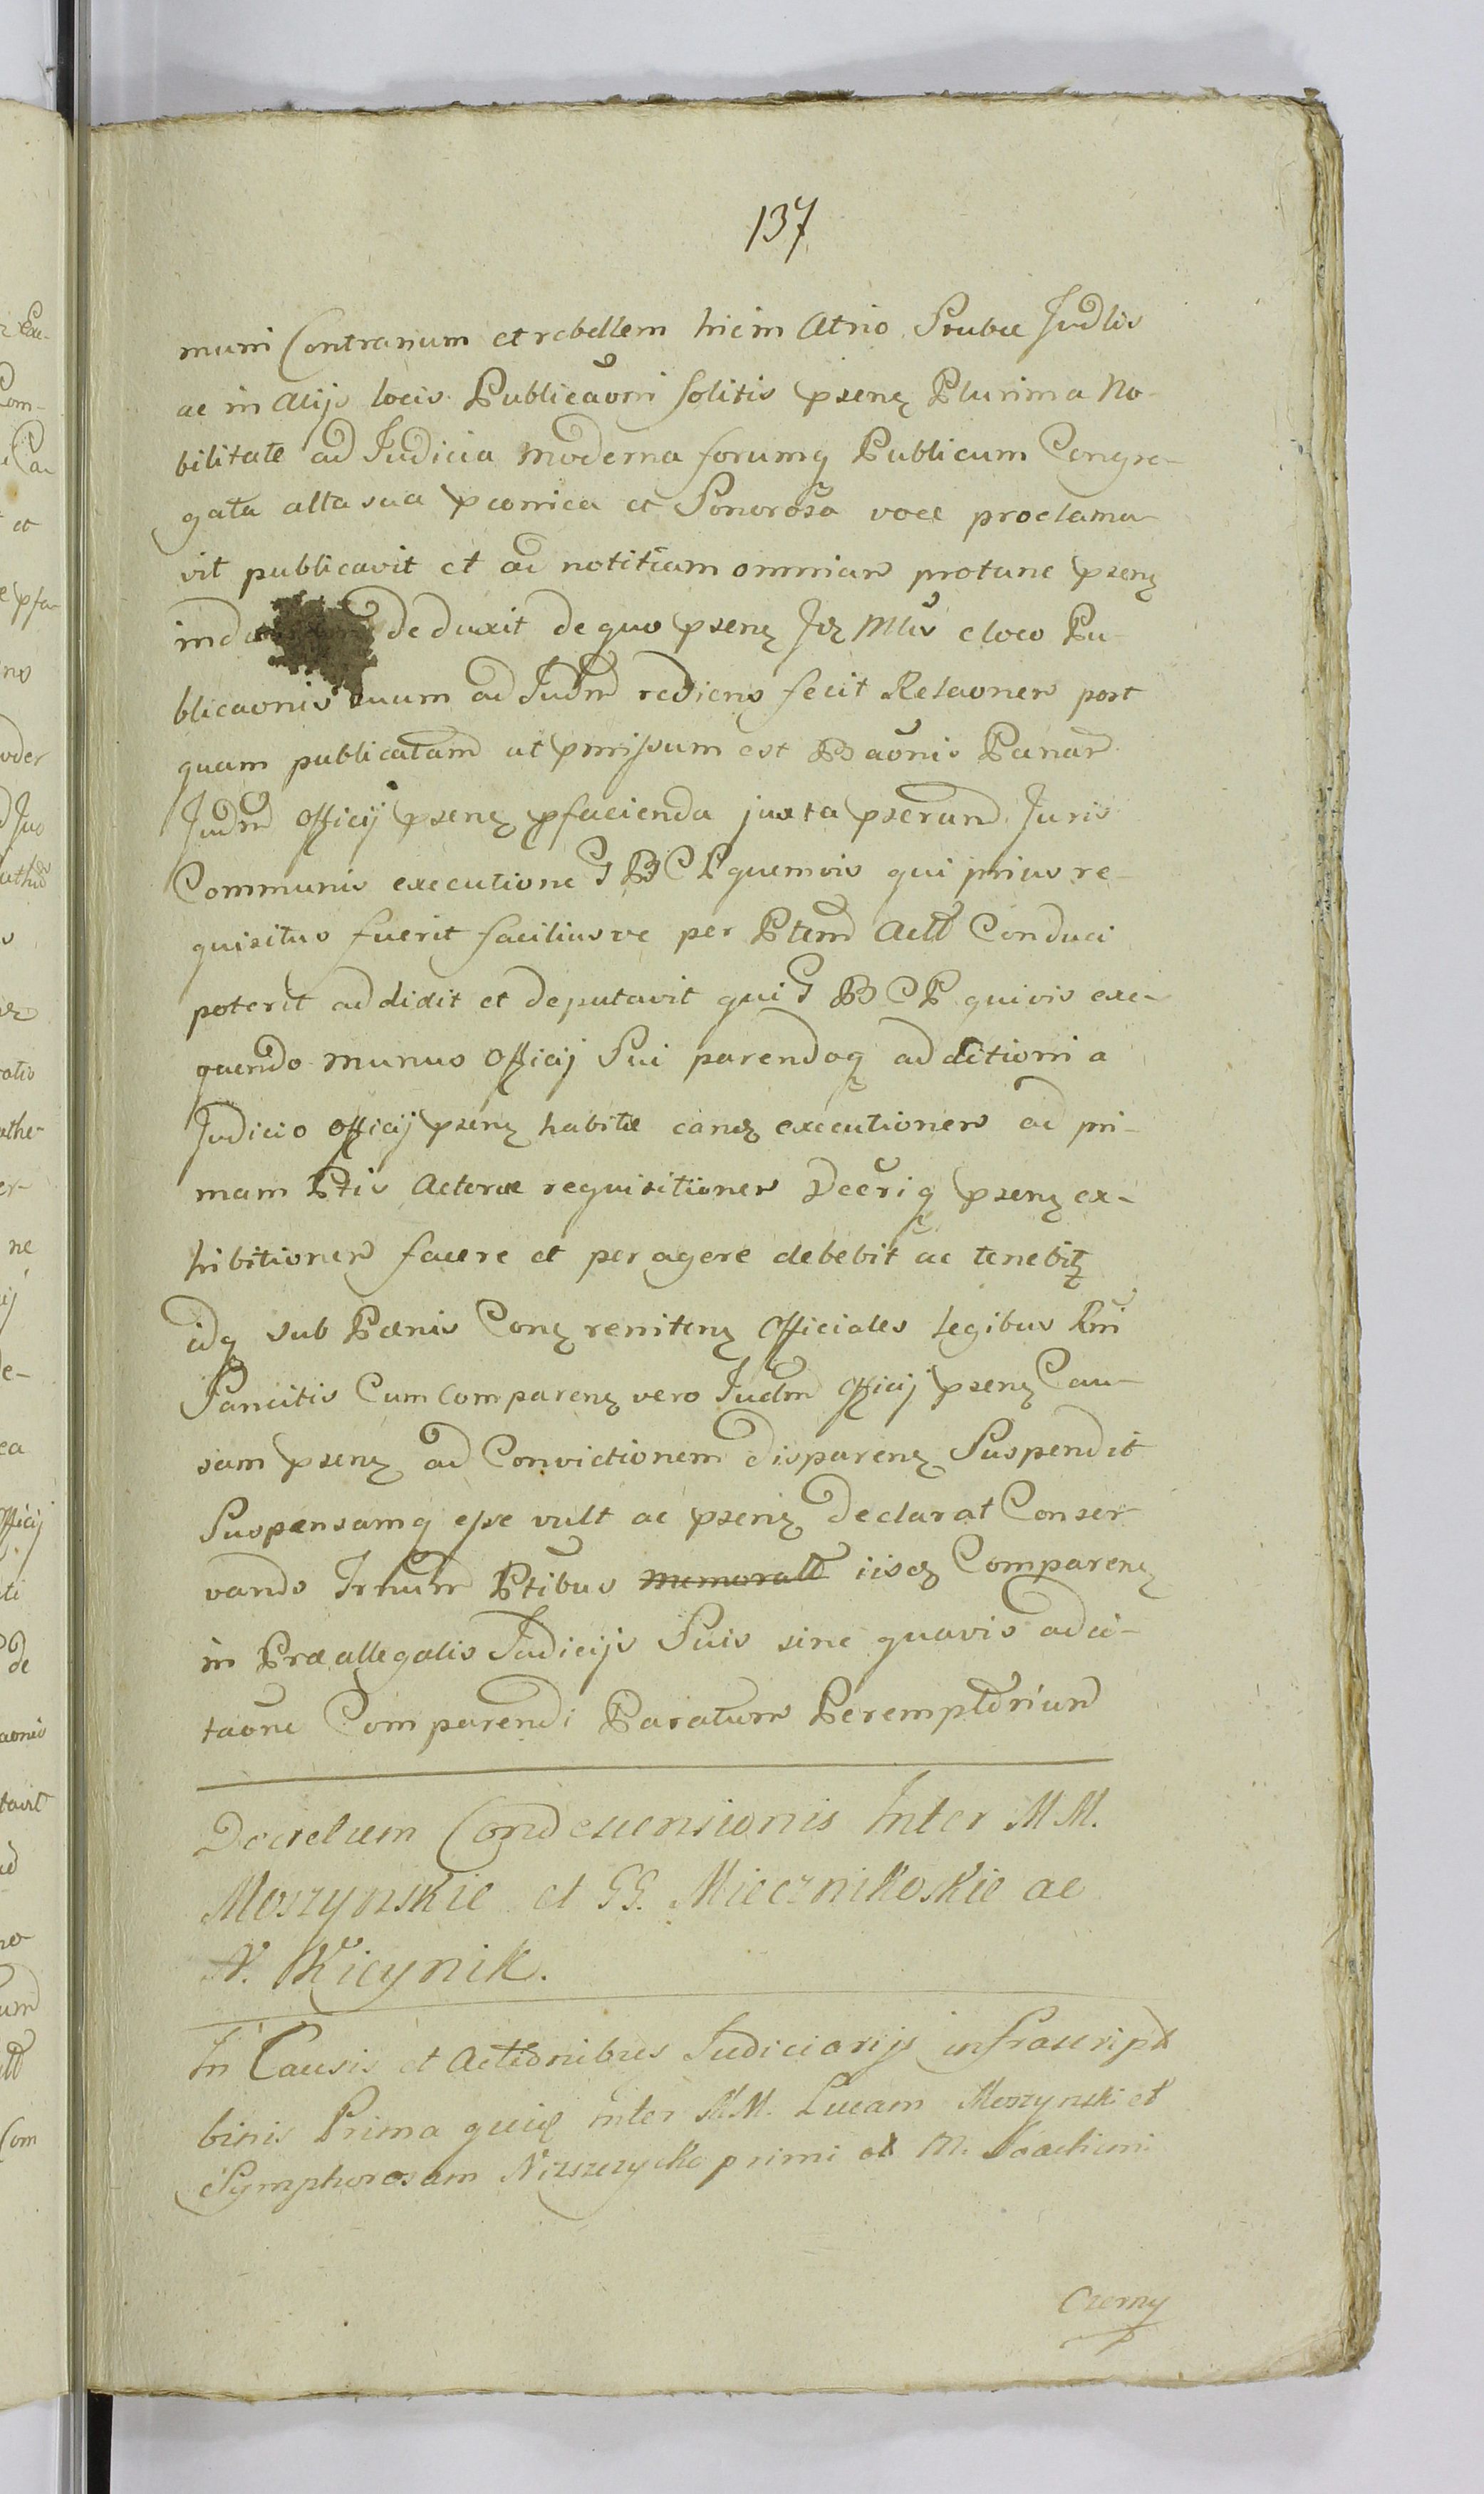 137
muni Contrarium et rebellem hicin Atrio Stubæ Judlis
ac in Alijs locis Publicaõni Solitis psenz Plurima No-
bilitate ad Judicia moderna forumq Publicum Congre-
gata alta sua et Sonorosa voce proclama-
vit publicavit et ad notitiam omnium protunc psenz
deduxit de quo psenz Jdz Mlis e loco Pu-
blicaonis suum ad Judm rediens fecit Relaonem post
quam publicatam ut pmissum est Baõnis Pænam
Judm Officij psenz pfacienda juxta pserand Juris
Communis executione G B C P quemvis qui prius re-
quisitus fuerit faciliusve per Ptem Actt Conduci
poterit addidit et deputavit qui G B C P quivis exe-
quendo munus Officij Sui parendoq additioni a
Judicio Officij psenz habitæ eandz executionem ad pri-
mam Ptis Actoræ requisitionem Decriq psenz ex-
hibitionem facere et peragere debebit ac tenebitz
idq sub Pænis Conz renitenz Officiales Legibus Rni
Sancitis Cum Comparenz vero Judm Officij psenz Cau-
sam psenz ad Convictionem disparenz Suspendit
Suspensamq esse vult ac psenz declarat Conser-
vando Trnum Ptibus iisdz Comparenz
in Præallegatis Judicijs Suis sine quavis adci-
taõne Comparendi Paratum Peremptorium
Decretum Condescensionis Inter MM.
Moszynskie et GG. Miecznikoskie ac
N. Kicynik.
In Causis et Actionibus Judiciarijs infrascript
binis Prima quidz inter MM. Lucam Moszynski et
Symphorosam Niszczycka primi et M. Joachimi
Czerny